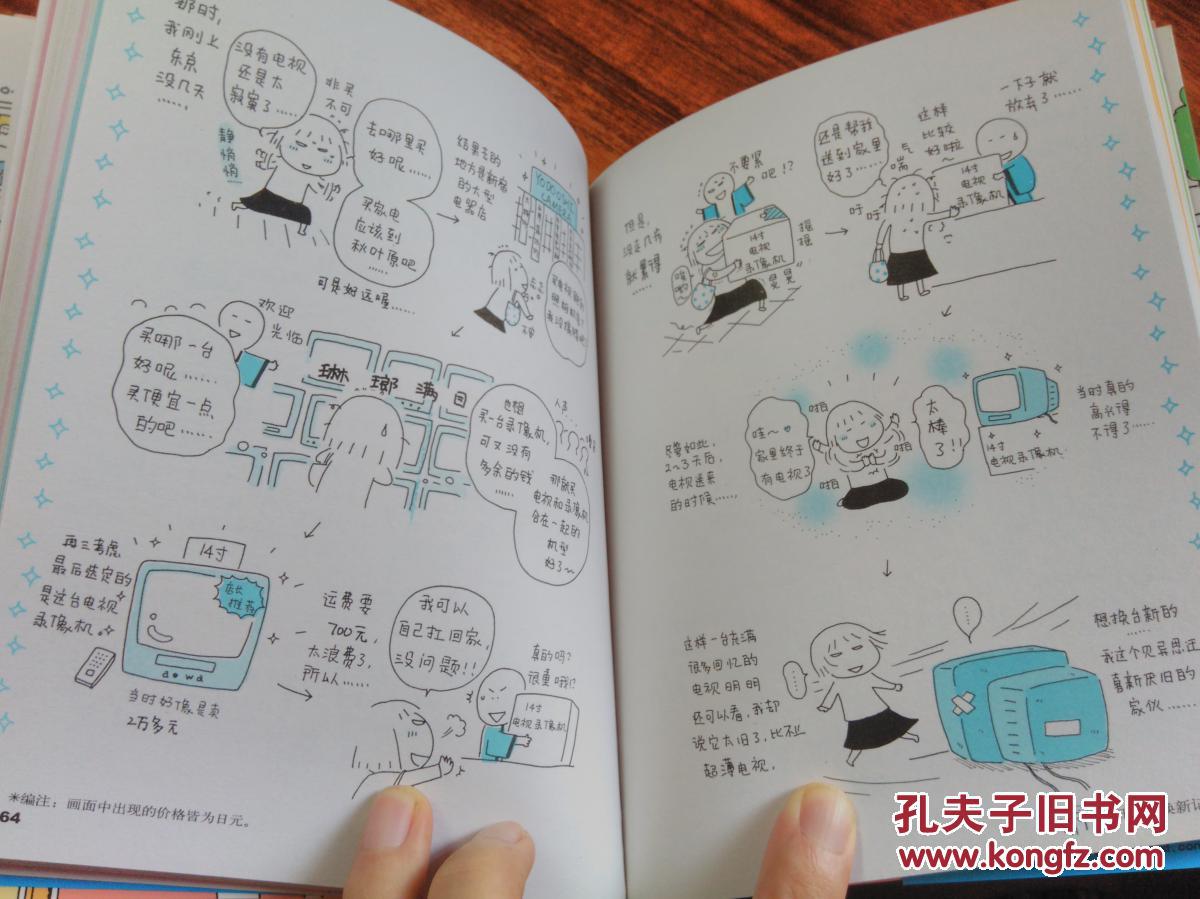 那时，
我刚上
东京
没几天
……
没有电视
还是太
寂寞了……
静悄悄
非买
不可
去哪里买
好呢……
买家电
应该到
秋叶原吧
……
可是好远喔……
结果去的
地方是新宿
的大型
电器店
YODOBASHI
CAMERA
欢迎
光临
买哪一台
好呢……
买便宜一点
的吧……
琳琅满目
也想
买一台录像机，
可又没有
多余的钱
……
那就买
电视和录像机
合在一起的
机型
好了~
再三考虑
最后选定的
是这台电视
录像机。
14寸
店长
推荐
当时好像是卖
2万多元
运费要
700元，
太浪费了，
所以……
我可以
自己扛回家，
没问题！！
真的吗？
很重哦！？
14寸
电视录像机
＊编注：画面中出现的价格皆为日元。
64
但是，
没走几步
就累得
……
不要紧
吧！？
14寸
电视
录像机
摇摇
晃晃
还是帮我
送到家里
好了……
气喘
吁吁
这样
比较
好啦~
一下子就
放弃了……
14寸
电视
录像机
尽管如此，
2~3天后，
电视送来
的时候……
哇~
家里终于
有电视了
啪
啪
啪
啪
太
棒
了！！
14寸
电视录像机
当时真的
高兴得
不得了……
这样一台充满
很多回忆的
电视明明
还可以看，我却
说它太旧了，比不上
超薄电视。
……
……
想换台新的
……
我这个见异思迁
喜新厌旧的
家伙……
孔夫子旧书网
www.kongfz.com